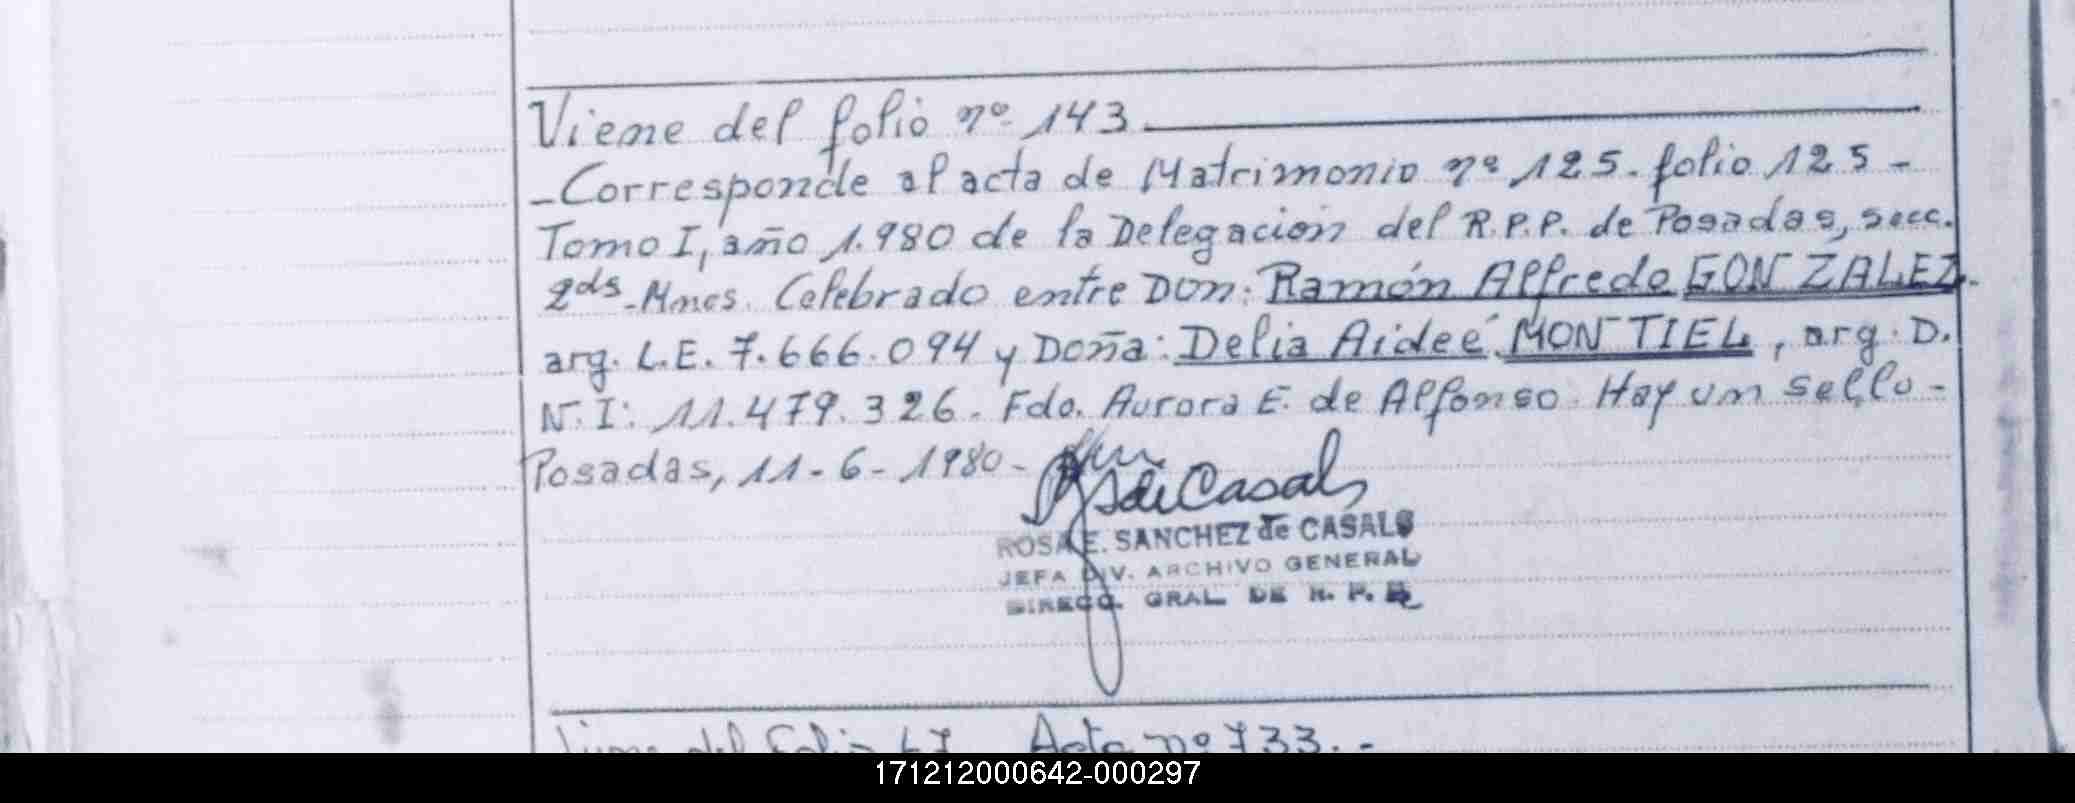 Viene del folio nº 143
- Corresponde al acta de Matrimonio nº 125. folio 125 -
Tomo I, año 1.980 de la Delegación del R.P.P. de Posadas, secc.
2da - Mnes. Celebrado entre Don: Ramón Alfredo GONZÁLEZ.
arg. L.E. 7.666.094 y Doña: Delia Aideé MONTIEL, arg. D.
N.I: 11.479.326. Fdo. Aurora E. de Alfonso. Hay un sello -
Posadas, 11-6-1980-
de Casals
ROSA E. SANCHEZ de CASALS
JEFA DIV. ARCHIVO GENERAL
DIRECC. GRAL. DE R. P. P.
Viene del Folio 67 Acta nº 733. -
171212000642-000297